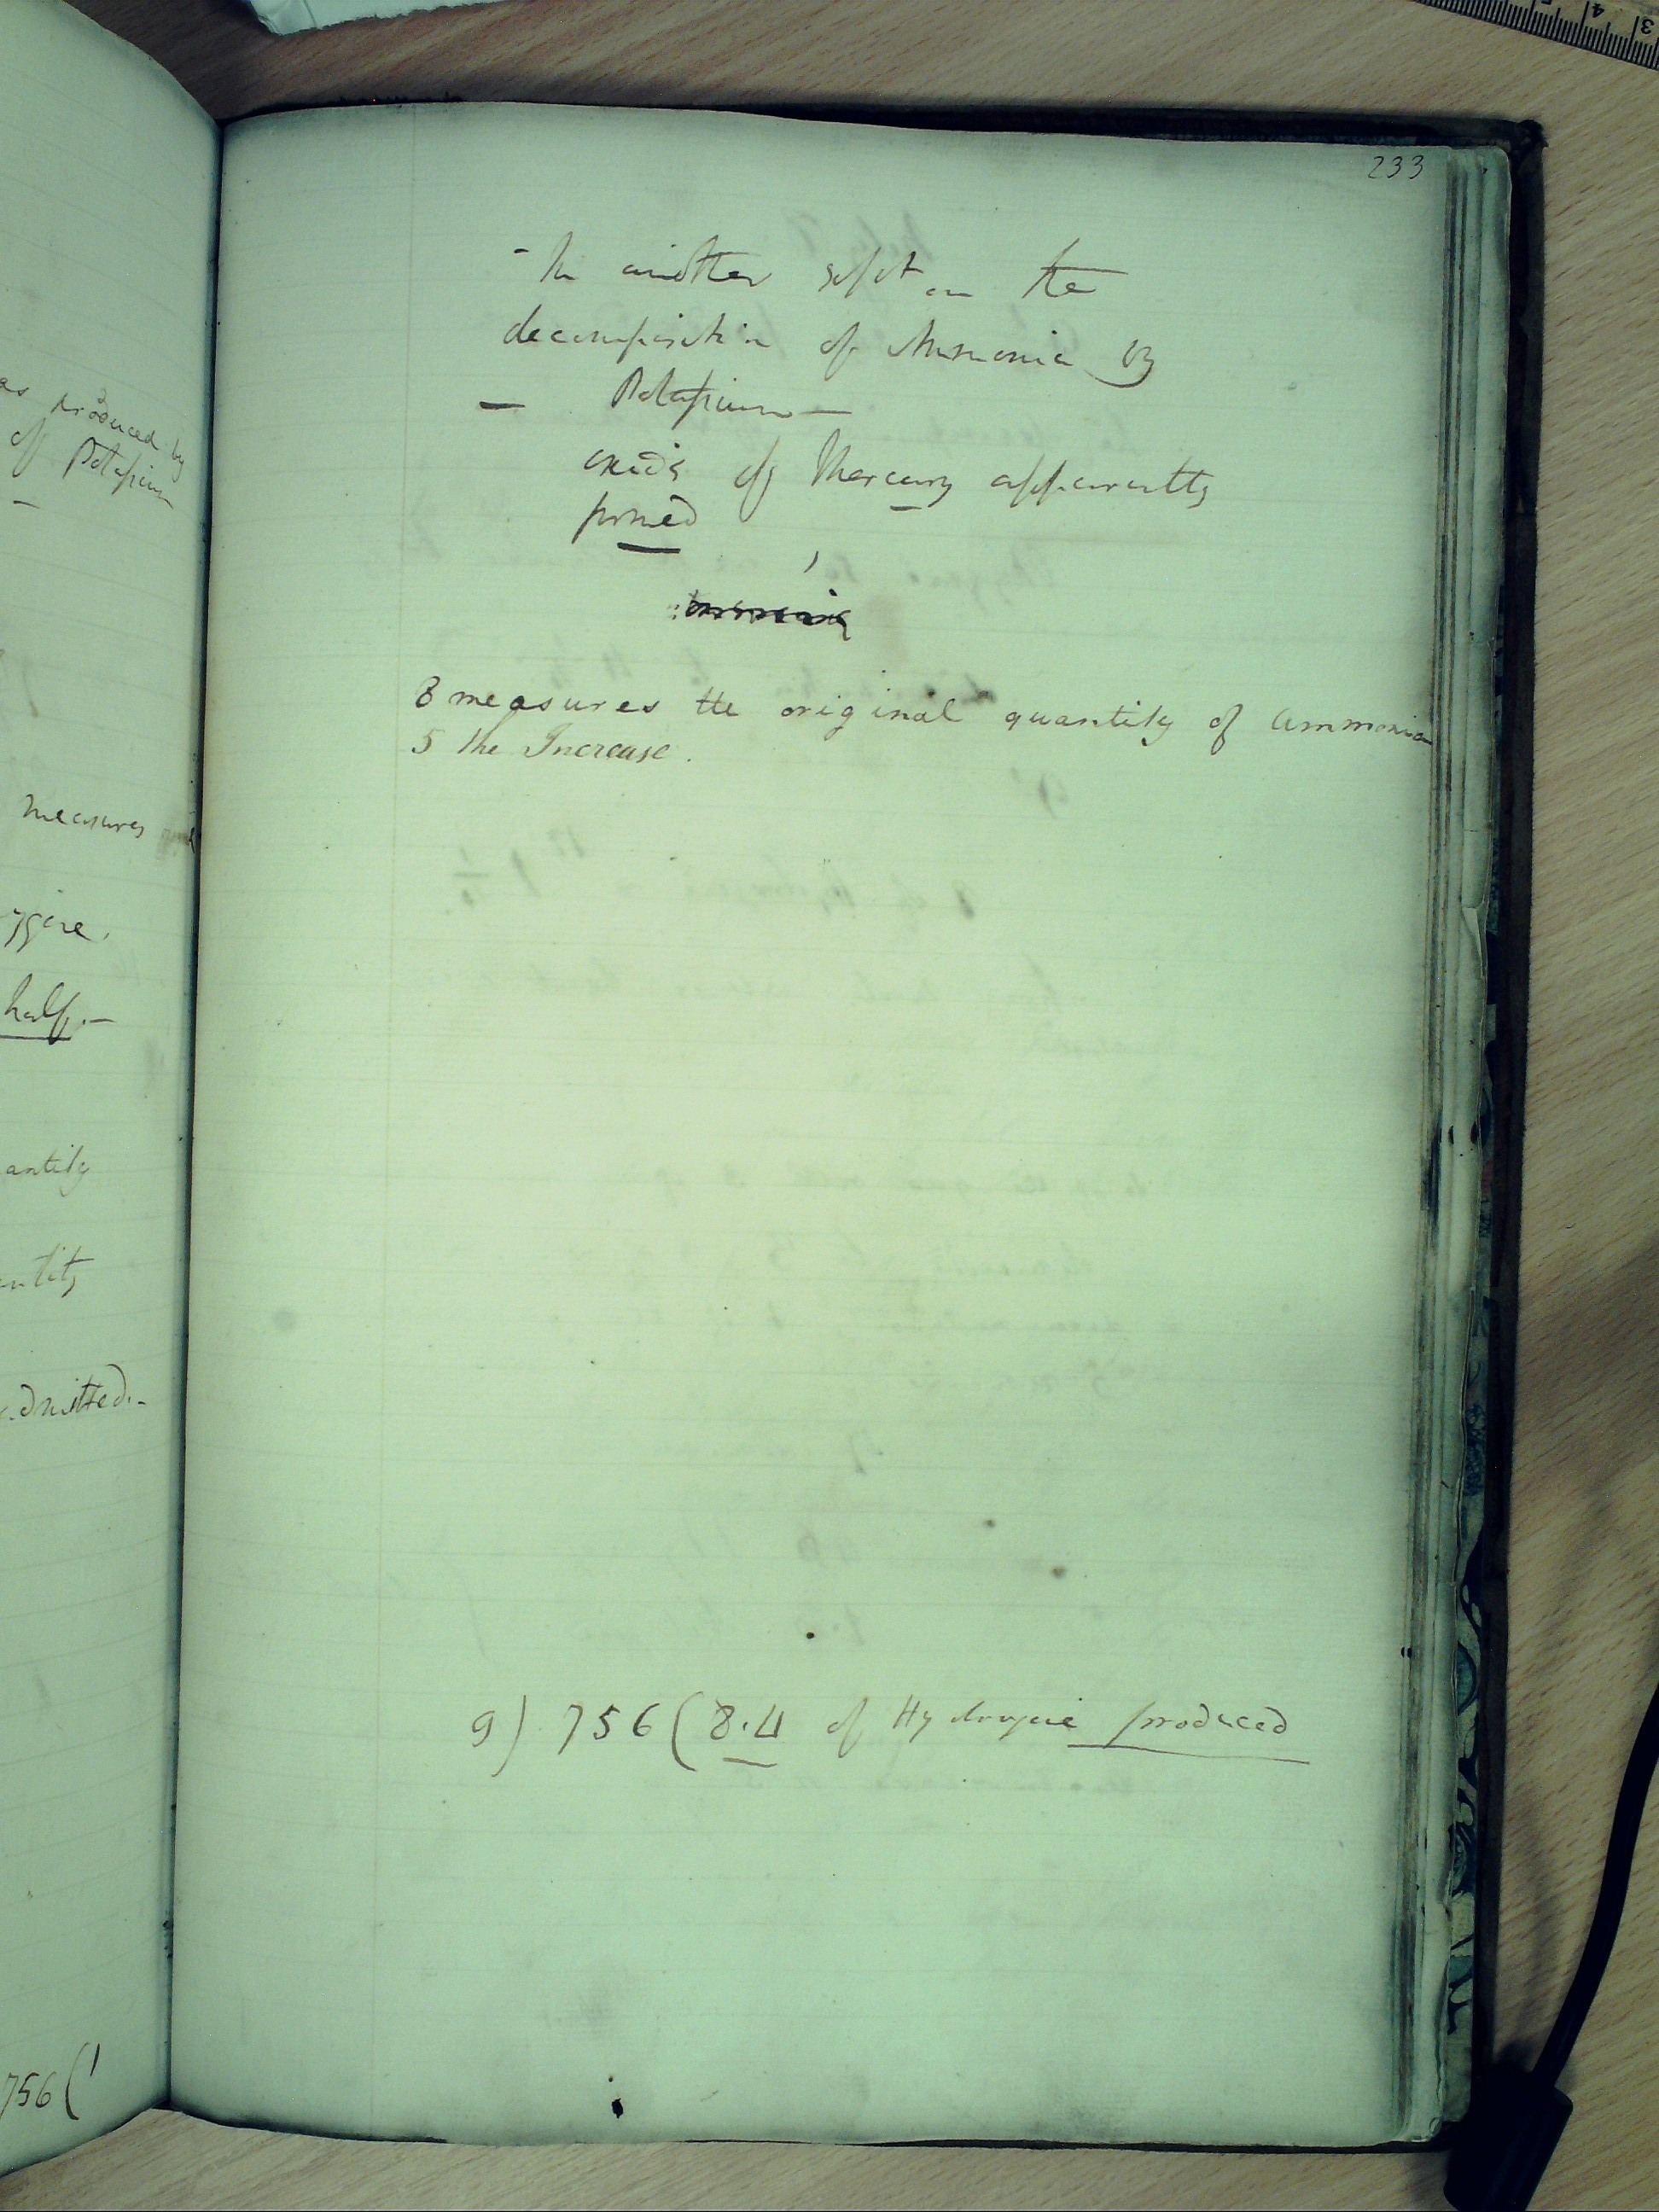 as produced by
of Potassium
measures
half.—
antity
antity
admitted.-
756(1
233
- In another expt on the
decomposition of Ammonia by
— Potassium —
oxide of Mercury apparently
formed
8 measures the original quantity of ammonia
5 the Increase.
9) 756 (8.4 of Hydrogene produced
3
4
5